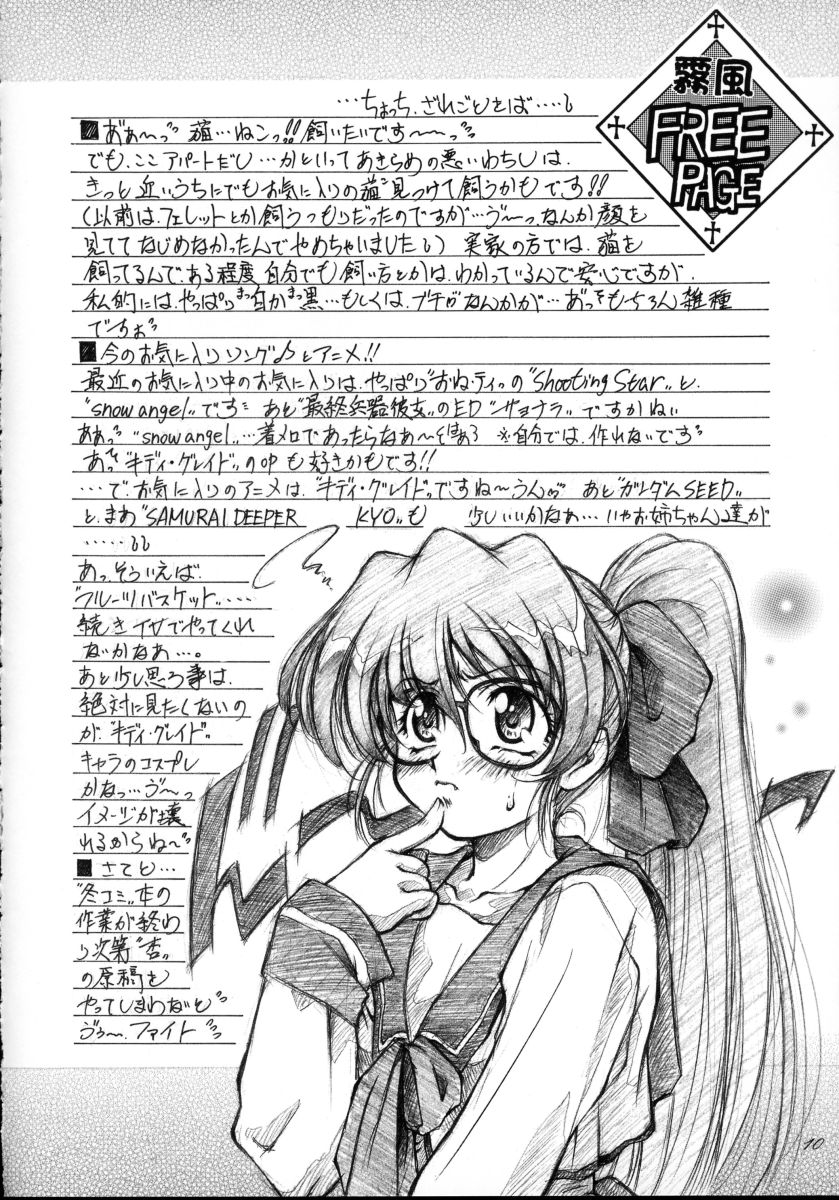 霧風
FREE
PAGE
…ちょっち、ざれごとをば……
■あぁ〜っ 猫…ねこっ!! 飼いたいです〜〜っ
でも、ここアパートだし…かといってあきらめの悪いわちしは、
きっと近いうちにでもお気に入りの猫見つけて飼うかもです!!
(以前は、フェレットとか飼うつもりだったのですが…ゔ〜っなんか顔を
見ててなじめなかったんでやめちゃいました) 実家の方では、猫を
飼ってるんで、ある程度自分でも飼い方とかは、わかっているんで安心ですが、
私的には、やっぱりまっ白かまっ黒…もしくは、ブチがなんかが…あっもちろん雑種
ですぉ
■今のお気に入りソング♪とアニメ!!
最近のお気に入り中のお気に入りは、やっぱり"おね・ティ"の"Shooting Star"と、
"snow angel"です あと"最終兵器彼女"のED"サヨナラ"ですかねぃ
ああっ"snow angel"…着メロであったらなぁ〜 ※自分では、作れないです
あっ"キディ・グレイド"の 中 も好きかもです!!
…で、お気に入りのアニメは、"キディ・グレイド"ですね〜うん あと"ガンダムSEED"
と、まあ"SAMURAI DEEPER KYO"も 少しいいかなぁ…いやお姉ちゃん達が
……
あっ、そういえば、
"フルーツバスケット"……
続きイサでやってくれ
ないかなあ…。
あと少し思う事は、
絶対に見たくないの
が、"キディ・グレイド"
キャラのコスプレ
かなっ…ゔ〜っ
イメージが壊
れるからね〜
■さてと…
"冬コミ"本の
作業が終わ
り次第"杏"
の原稿を
やってしまわないと
ゔぅ〜、ファイト
10